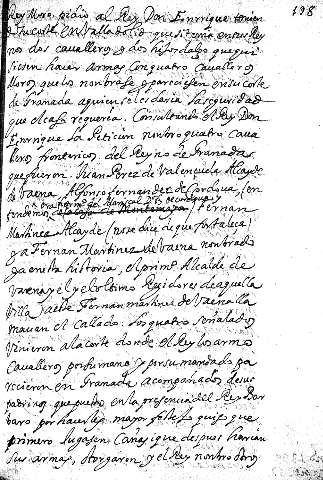 198
Rey Moro pidio al Rey Don Enrrique
en Valladolid que si en sus Rey
nos dos cavalleros o dos hijosdalgo que qui
siesen hacer armas con quatro cavalleros
Moros que los nonbrase y pareciesen en su corte
de Granada a quien seles daria la seguridad
que el caso requeria. Consultando el Rey Don
Enrrique la Peticion nonbro quatro cava
lleros fronteriços del Reyno de Granada
que fueron Juan Perez de Valençuela Alcayde
de Vaena, Alfonso Fernandez de Cordova, (en
tendemos Fernan
Martinez Alcayde (no se dice de que fortaleça)
y a Fernan Martinez de Vaena nonbrado
ya en esta historia, el primº Alcalde de
Vaena y el y el ultimo Regidores de aquella
Villa Fernan martinez de Vaena lla
mavan el Callado. Los quatro señalados
vinieron a la corte donde el Rey los armo
Cavalleros por su mano y por su mandado pa
recieron en Granada acompañados de sus
padrinos que puestos en la presencia del Rey Bar
baro por hacerles mayor fiesta quiso que
primero jugasen Cañas que despues harian
sus armas, otorgaron y el Rey nonbro otros